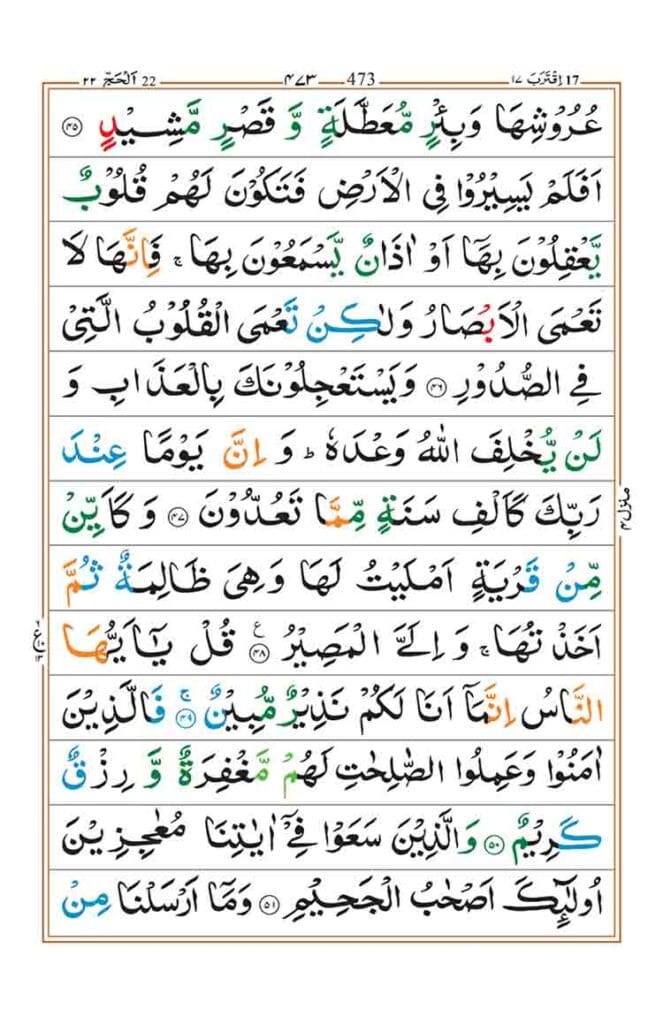 ١٧ اِقْتَرَبَ 17 473 ٤٧٣ 22 اَلْحَجّ ٢٢
عُرُوْشِهَا وَبِئْرٍ مُّعَطَّلَةٍ وَّ قَصْرٍ مَّشِيْدٍ ﴿۴۵﴾
اَفَلَمْ يَسِيْرُوْا فِى الْاَرْضِ فَتَكُوْنَ لَهُمْ قُلُوْبٌ
يَّعْقِلُوْنَ بِهَاۤ اَوْ اٰذَانٌ يَّسْمَعُوْنَ بِهَا ۚ فَاِنَّهَا لَا
تَعْمَى الْاَبْصَارُ وَلٰكِنْ تَعْمَى الْقُلُوْبُ الَّتِىْ
فِى الصُّدُوْرِ ﴿۴۶﴾ وَيَسْتَعْجِلُوْنَكَ بِالْعَذَابِ وَ
لَنْ يُّخْلِفَ اللّٰهُ وَعْدَهٗ ؕ وَ اِنَّ يَوْمًا عِنْدَ
رَبِّكَ كَاَلْفِ سَنَةٍ مِّمَّا تَعُدُّوْنَ ﴿۴۷﴾ وَ كَاَيِّنْ
مِّنْ قَرْيَةٍ اَمْلَيْتُ لَهَا وَهِىَ ظَالِمَةٌ ثُمَّ
اَخَذْتُهَا ۚ وَ اِلَىَّ الْمَصِيْرُ ﴿۴۸﴾ ع قُلْ يٰۤاَيُّهَا
النَّاسُ اِنَّمَاۤ اَنَا لَكُمْ نَذِيْرٌ مُّبِيْنٌ ۚ ﴿۴۹﴾ فَالَّذِيْنَ
اٰمَنُوْا وَعَمِلُوا الصّٰلِحٰتِ لَهُمْ مَّغْفِرَةٌ وَّ رِزْقٌ
كَرِيْمٌ ﴿۵۰﴾ وَالَّذِيْنَ سَعَوْا فِىْۤ اٰيٰتِنَا مُعٰجِزِيْنَ
اُولٰٓئِكَ اَصْحٰبُ الْجَحِيْمِ ﴿۵۱﴾ وَمَاۤ اَرْسَلْنَا مِنْ
منزل ۴